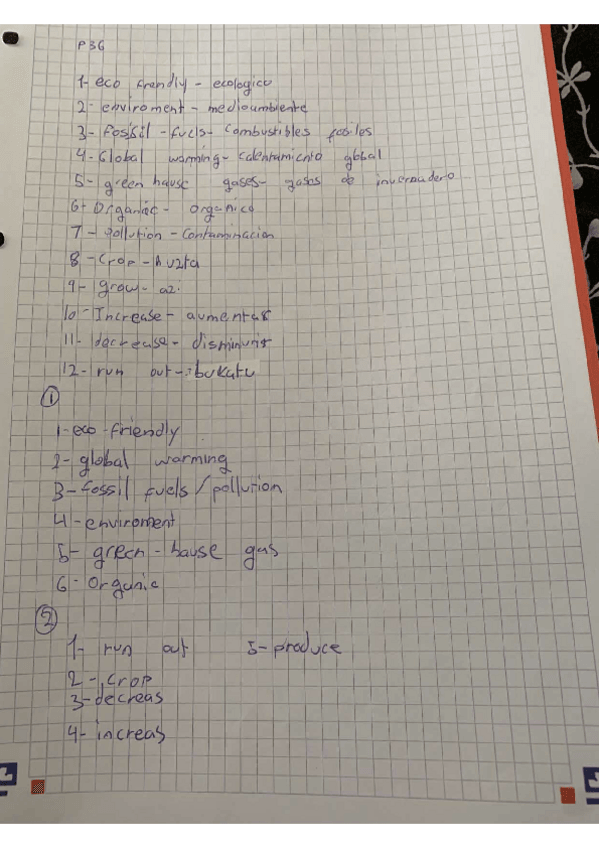 P36
1- eco frendly - ecologico
2- enviroment - medioambiente
3- Fossil - fuels - Combustibles fosiles
4- Global warming - calentamiento global
5- green hause gases - gases de invernadero
6- Organic - organico
7- pollution - Contaminacion
8- Crop - uzta
9- grow -
10- Increase - aumentar
11- decrease - disminuir
12- run out - bukatu
1
1- eco-friendly
2- global warming
3- fossil fuels / pollution
4- enviroment
5- green - hause gas
6- Organic
2
1- run out 5- produce
2- crop
3- decreas
4- increas